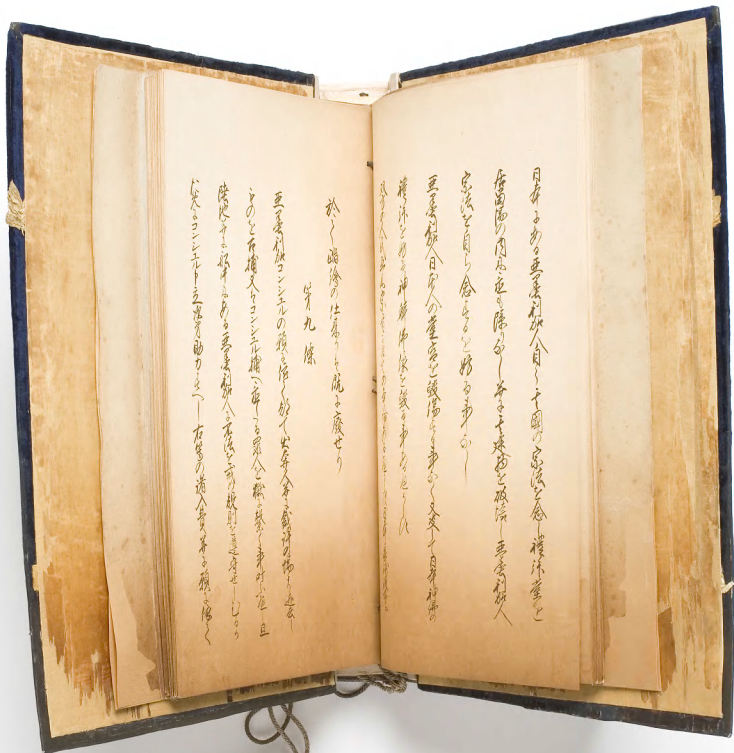 日本にある亞墨利加人自ら其國の宗法を念し禮拜堂を
居留場の内に置も障りなし並に其建物を破壞し亞墨利加人
宗法を自ら念するを妨る事なし
亞墨利加人日本人の堂宮を毀傷する事なく又決して日本神佛の
禮拜を妨け神體佛像を毀る事あるへからす
雙方の人民互に宗旨に付ての爭論あるへからす日本長崎役所に
於て踏繪の仕來は既に廢せり
第九條
亞墨利加コンシユルの願に依て都て出奔人並に裁許の場より逃去し
ものを召捕又はコンシユル捕へ置たる罪人を獄に繋く事叶ふへし且
陸地並に船中にある亞墨利加人に不法を戒め規則を遵守せしむるか
爲にコンシユル申立次第助力すへし右等の諸入費並に願に依て